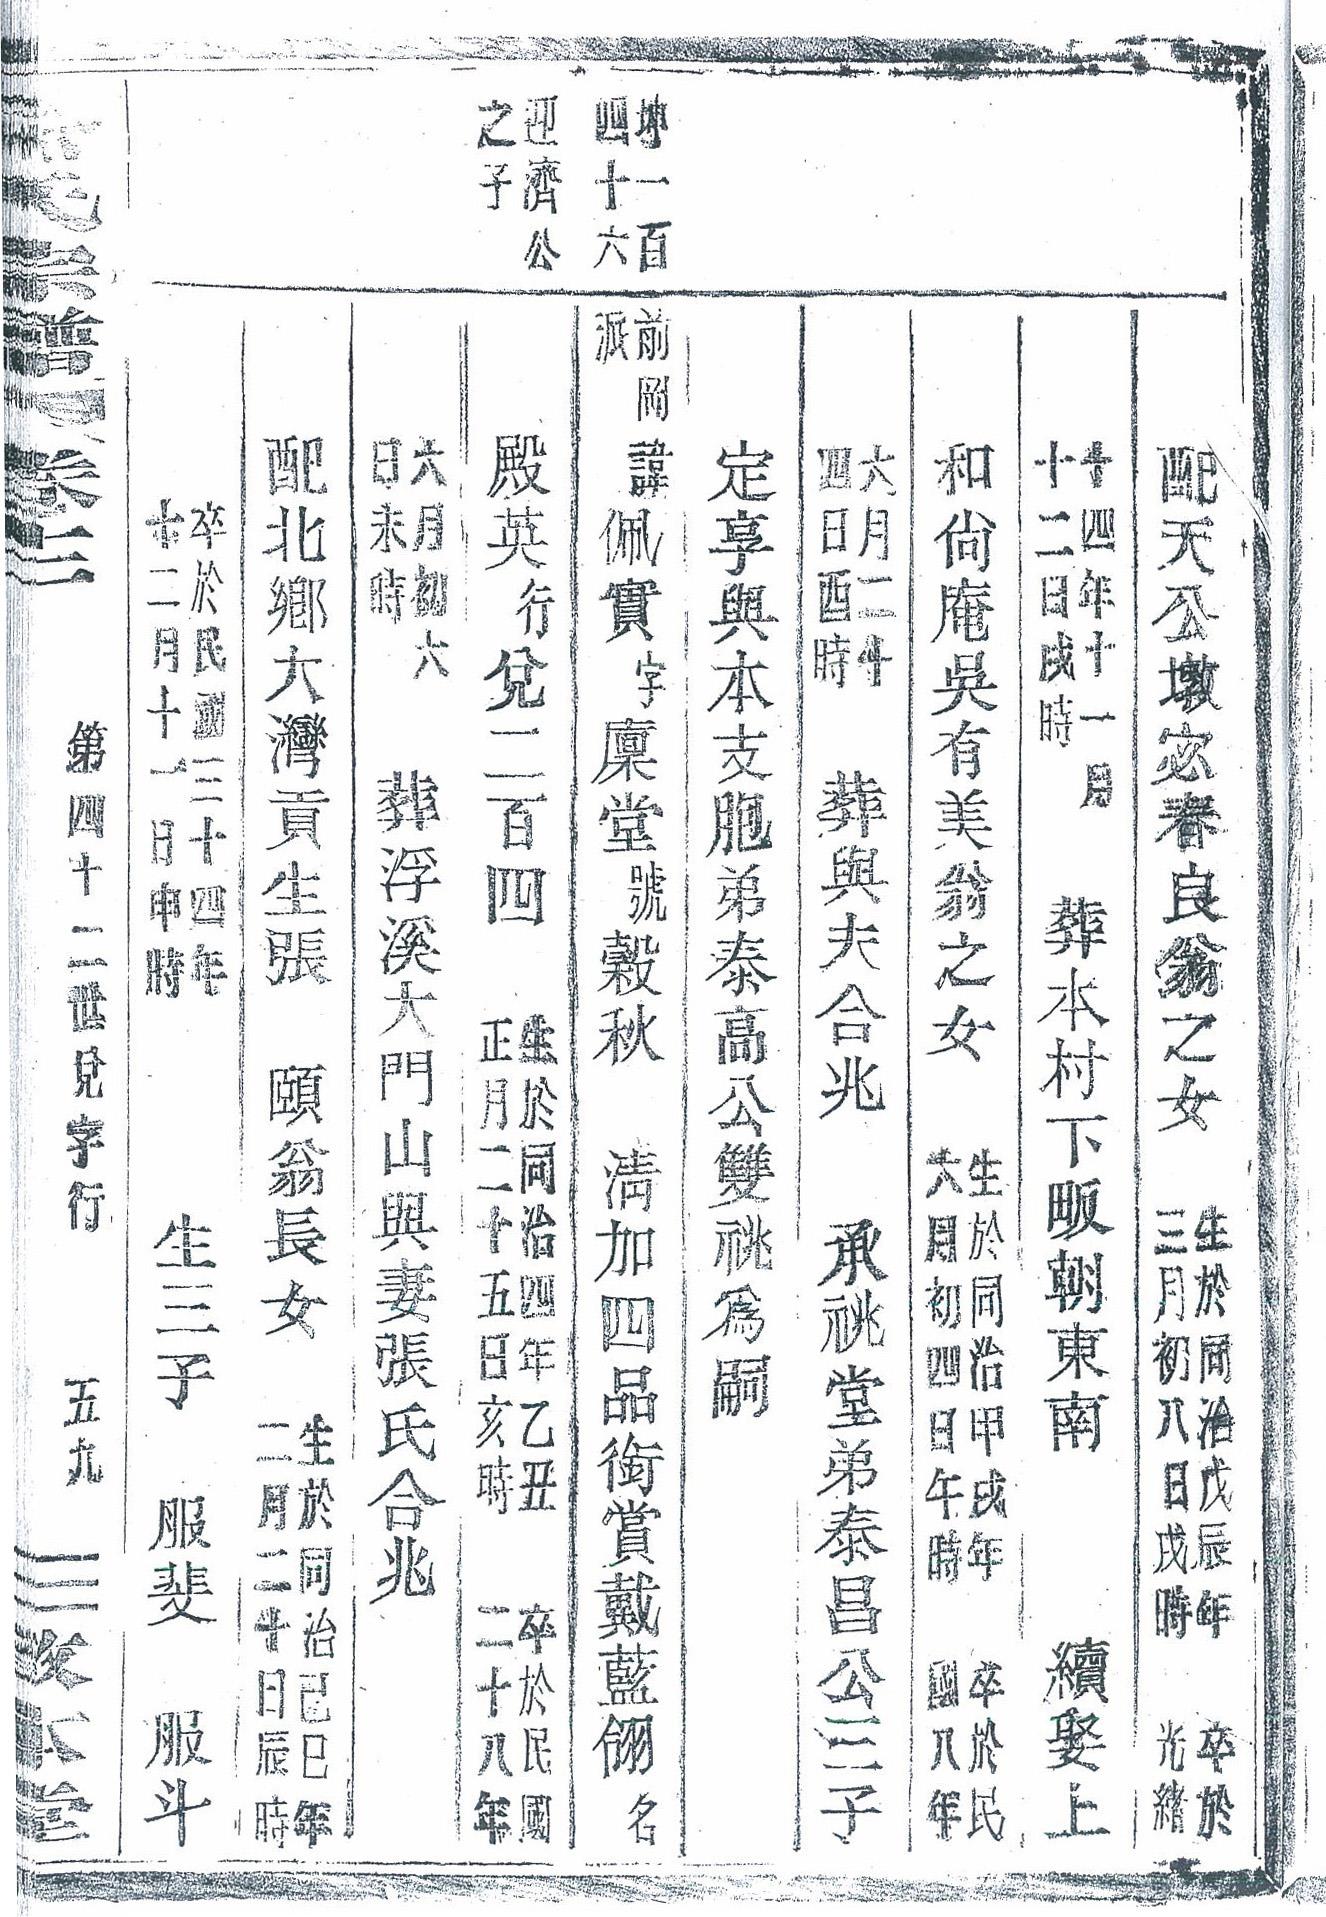 配天公墩宓春良翁之女 生於同治戊辰年三月初八日戌時 卒於光緒
十四年十一月十二日戌時 葬本村下畈朝東南 續娶上
和尙庵吳有美翁之女 生於同治甲戌年六月初四日午時 卒於民國八年
六月二十四日酉時 葬與夫合兆 承祧堂弟泰昌公三子
定享與本支胞弟泰高公雙祧爲嗣
坤一百四十六
前岡派 諱佩實 字廩堂 號穀秋 淸加四品銜賞戴藍翎 名
迎濟公之子
殿英 行兌二百四 生於同治四年乙丑正月二十五日亥時 卒於民國二十八年
六月初六日未時 葬浮溪大門山與妻張氏合兆
配北鄉大灣貢生張 頤翁長女 生於同治己巳年二月二十日辰時
卒於民國三十四年十二月十一日申時 生三子 服斐 服斗
氏宗譜 卷三 第四十二世兌字行 五九 本堂